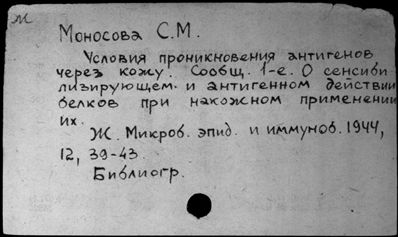 Ж
Моносова С.М.
Условия проникновения антигенов
через кожу. Сообщ. 1-е. О сенсиби
лизирующем и антигенном действии
белков при накожном применении
их.
Ж. Микроб. эпид. и иммуноб. 1944,
12, 39-43.
Библиогр.